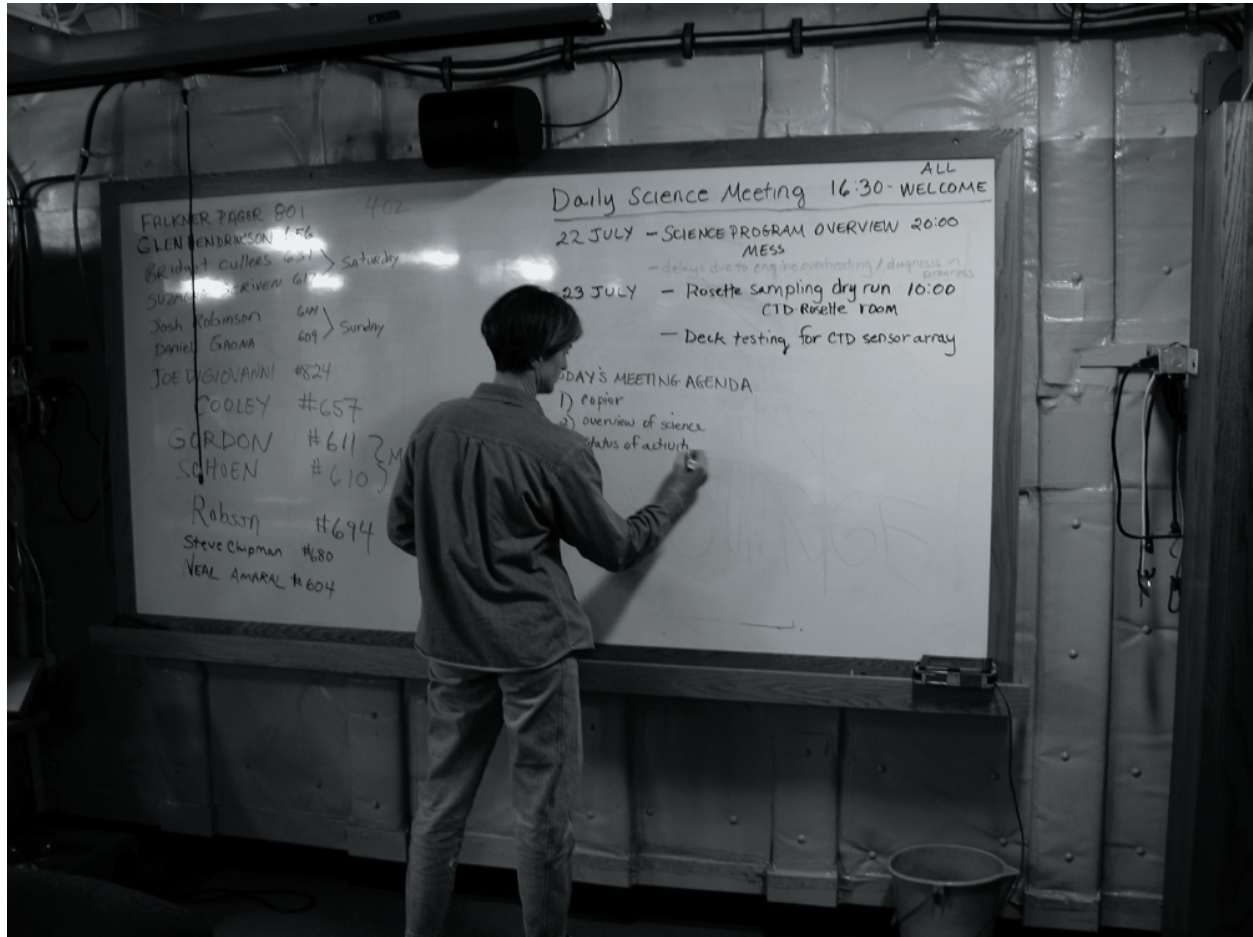 FALKNER PAGER 801
402
GLEN HENDRICKSON 656
Bridget Cullers 631
Saturday
SCRIVEN 617
Josh Robinson 644
Sunday
DANIEL GAONA 609
JOE DIGIOVANNI #824
COOLEY #657
GORDON #611
M
SCHOEN #610
Robson #694
Steve Chapman #680
NEAL AMARAL #604
Daily Science Meeting 16:30-
ALL
WELCOME
22 JULY - SCIENCE PROGRAM OVERVIEW 20:00
MESS
- delays due to engine overheating / diagnosis in
progress
23 JULY - Rosette sampling dry run 10:00
CTD Rosette room
- Deck testing for CTD sensor array
DAY'S MEETING AGENDA
1) copier
2) overview of science
status of activit